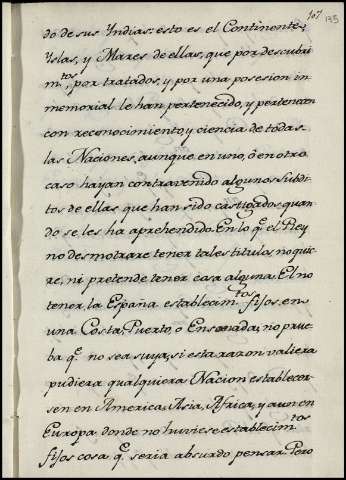 107
135
do de sus Yndias: esto es el Continente,
Yslas, y Mares de ellas, que por descubri
m.tos, por tratados, y por una posesion in
memorial le han pertenecido, y pertenecen
con reconocimiento, y ciencia de todas
las Naciones, aunque en uno, ò en otro
caso hayan contravenido algunos Subdi
tos de ellas que han sido castigados, quan
do se les ha aprehendido. En lo q.e el Rey
no desmotrare tener tales titulos, no quie
re, ni pretende tener casa alguna. El no
tener, la España establecim.tos fijos, en
una Costa, Puerto, o Ensenada, no prue
ba q.e no sea suya, si esta razon valiera
pudiera qualquiera Nacion establecer
se en en America, Asia, Africa, y aun en
Europa donde no huviese establecim.tos
fijos cosa q.e seria absurdo pensar. Pero